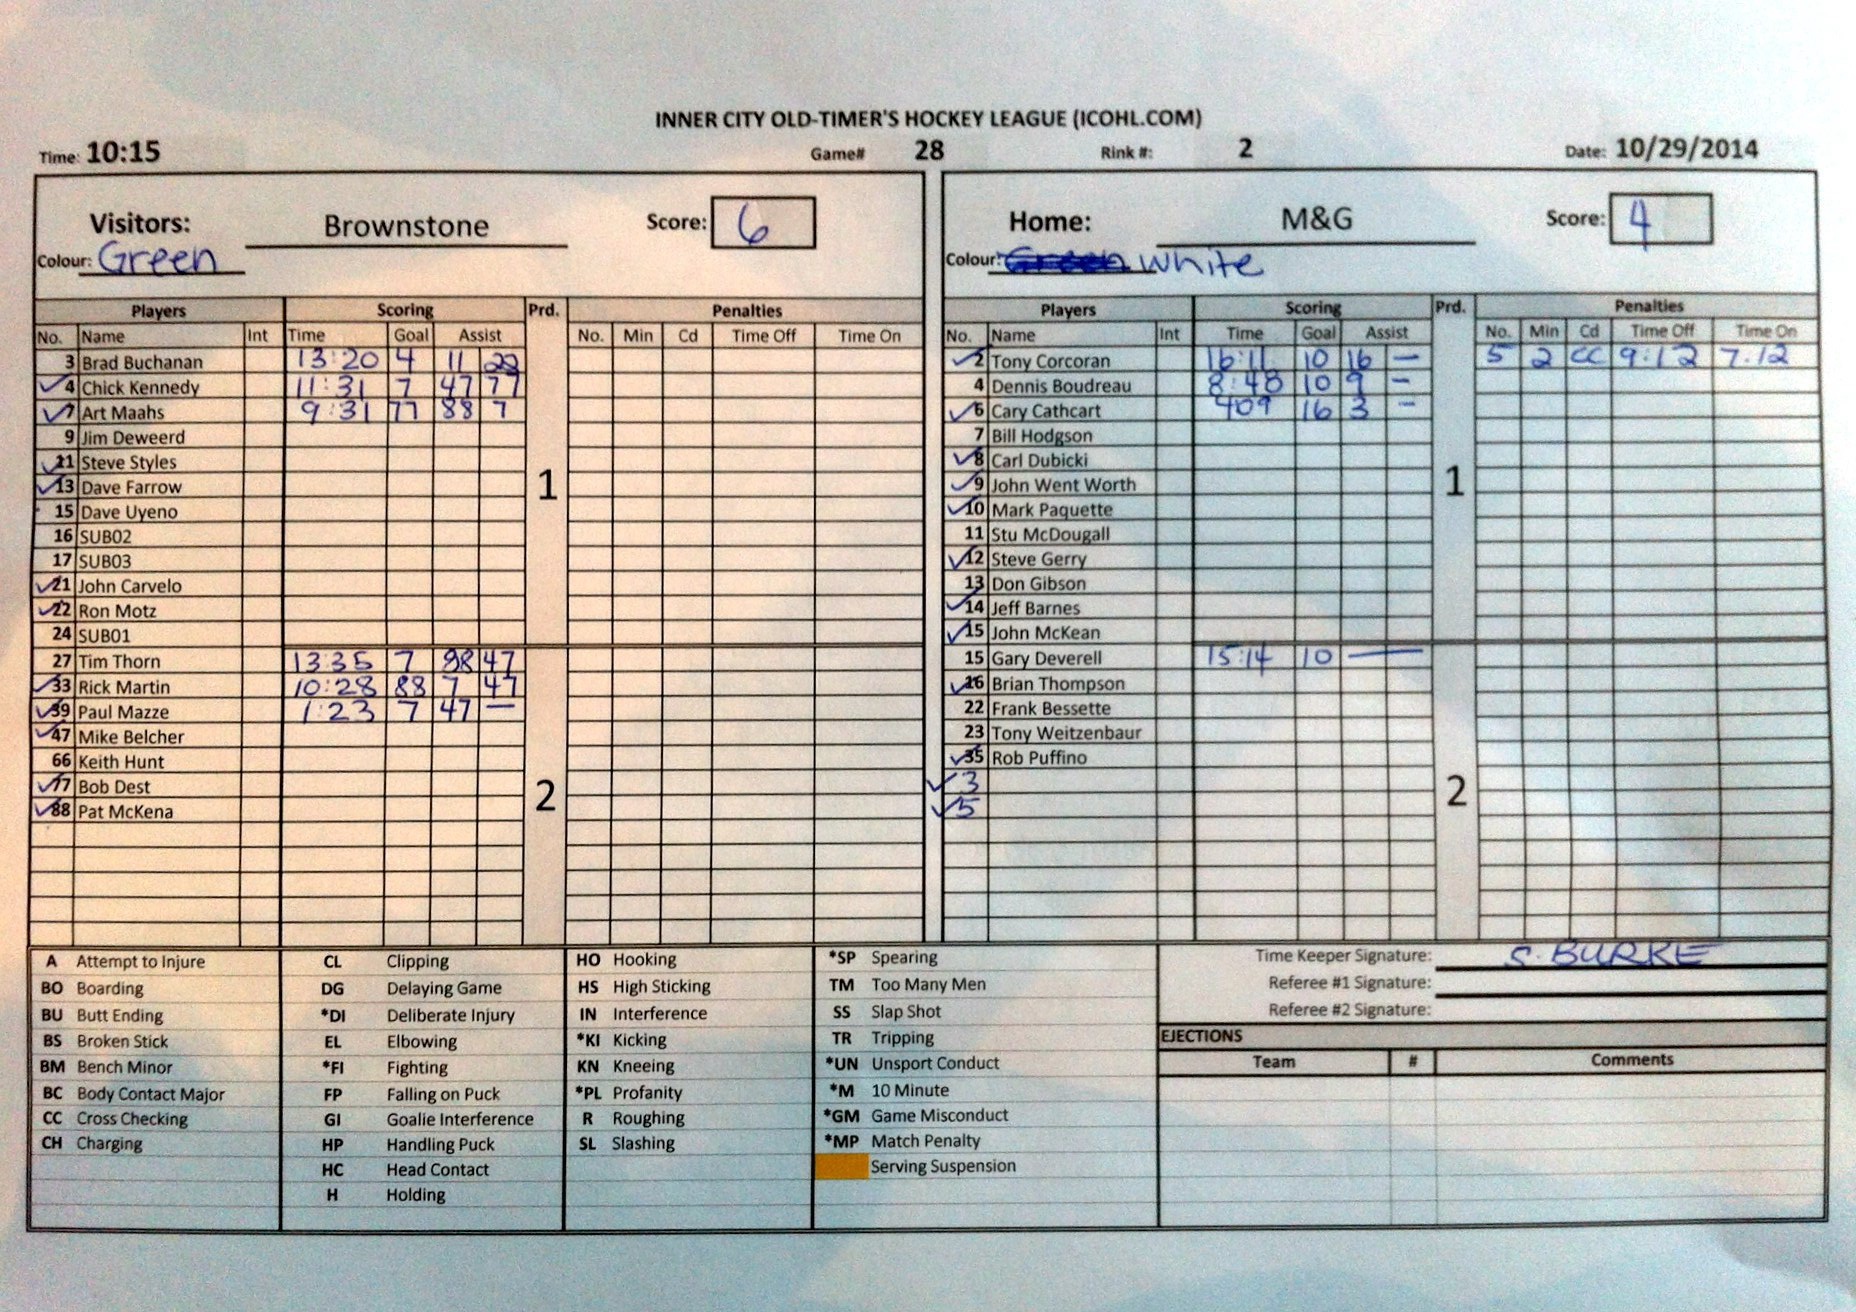 INNER CITY OLD-TIMER'S HOCKEY LEAGUE (ICOHL.COM)
Time: 10:15 Game# 28 Rink #: 2 Date: 10/29/2014
Visitors: Brownstone Score: 6
Colour: Green
Players Scoring Prd. Penalties
No. Name Int Time Goal Assist No. Min Cd Time Off Time On
3 Brad Buchanan 13:20 4 11 22
✓4 Chick Kennedy 11:31 7 47 77
✓7 Art Maahs 9:31 77 88 7
9 Jim Deweerd
✓11 Steve Styles
✓13 Dave Farrow
1
15 Dave Uyeno
16 SUB02
17 SUB03
✓21 John Carvelo
✓22 Ron Motz
24 SUB01
27 Tim Thorn 13:35 7 88 47
✓33 Rick Martin 10:28 88 7 47
✓39 Paul Mazze 1:23 7 47 —
✓47 Mike Belcher
66 Keith Hunt
✓77 Bob Dest
2
✓88 Pat McKena
Home: M&G Score: 4
Colour: White
Players Scoring Prd. Penalties
No. Name Int Time Goal Assist No. Min Cd Time Off Time On
✓2 Tony Corcoran 16:11 10 16 — 5 2 CC 9:12 7.12
4 Dennis Boudreau 8:48 10 9 -
✓6 Cary Cathcart 409 16 3 -
7 Bill Hodgson
✓8 Carl Dubicki
✓9 John Went Worth
1
✓10 Mark Paquette
11 Stu McDougall
✓12 Steve Gerry
13 Don Gibson
✓14 Jeff Barnes
✓15 John McKean
15 Gary Deverell 15:14 10 —
✓16 Brian Thompson
22 Frank Bessette
23 Tony Weitzenbaur
✓35 Rob Puffino
✓3
2
✓5
A Attempt to Injure
BO Boarding
BU Butt Ending
BS Broken Stick
BM Bench Minor
BC Body Contact Major
CC Cross Checking
CH Charging
CL Clipping
DG Delaying Game
*DI Deliberate Injury
EL Elbowing
*FI Fighting
FP Falling on Puck
GI Goalie Interference
HP Handling Puck
HC Head Contact
H Holding
HO Hooking
HS High Sticking
IN Interference
*KI Kicking
KN Kneeing
*PL Profanity
R Roughing
SL Slashing
*SP Spearing
TM Too Many Men
SS Slap Shot
TR Tripping
*UN Unsport Conduct
*M 10 Minute
*GM Game Misconduct
*MP Match Penalty
Serving Suspension
Time Keeper Signature: S. BURKE
Referee #1 Signature:
Referee #2 Signature:
EJECTIONS
Team # Comments